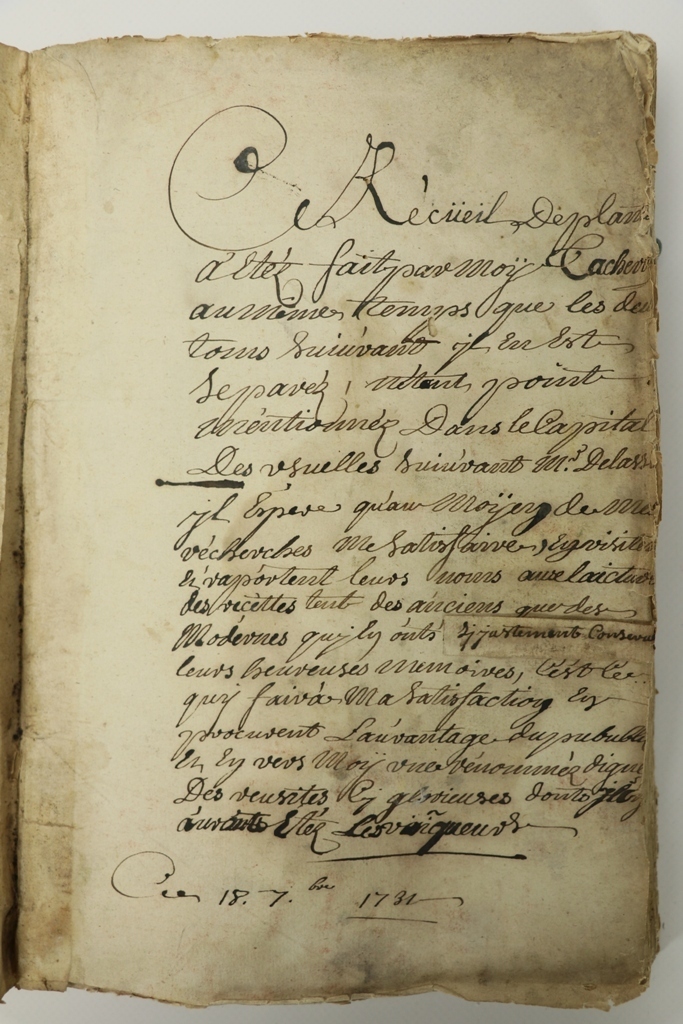 Ce Récüeil De plan
a Etéz fait par Moÿ Cacher
au même temps que les de
toms suiuvant jl En Est
separéz, n'étant point
méntionnéz Dans le Capital
Des vsuelles suiuvant Mr. Delas
jl Espere qu'au Moÿen de mes
récherches Me satisfaire, Ey visite
En rapportent leurs noms
des recéttes tent des anciens que des
Modérnes quj Ey onts sj justement Conserv
leurs heureuses memoires, C'est Ce
quj faira Ma satisfaction Ey
procurent L'auvantage du pububli
En Ey vers Moÿ vne rénomméz digne
Des reusites sj glorieuses donts
auronts Etéz Les vinqueurs
Ce 18. 7.bre 1731